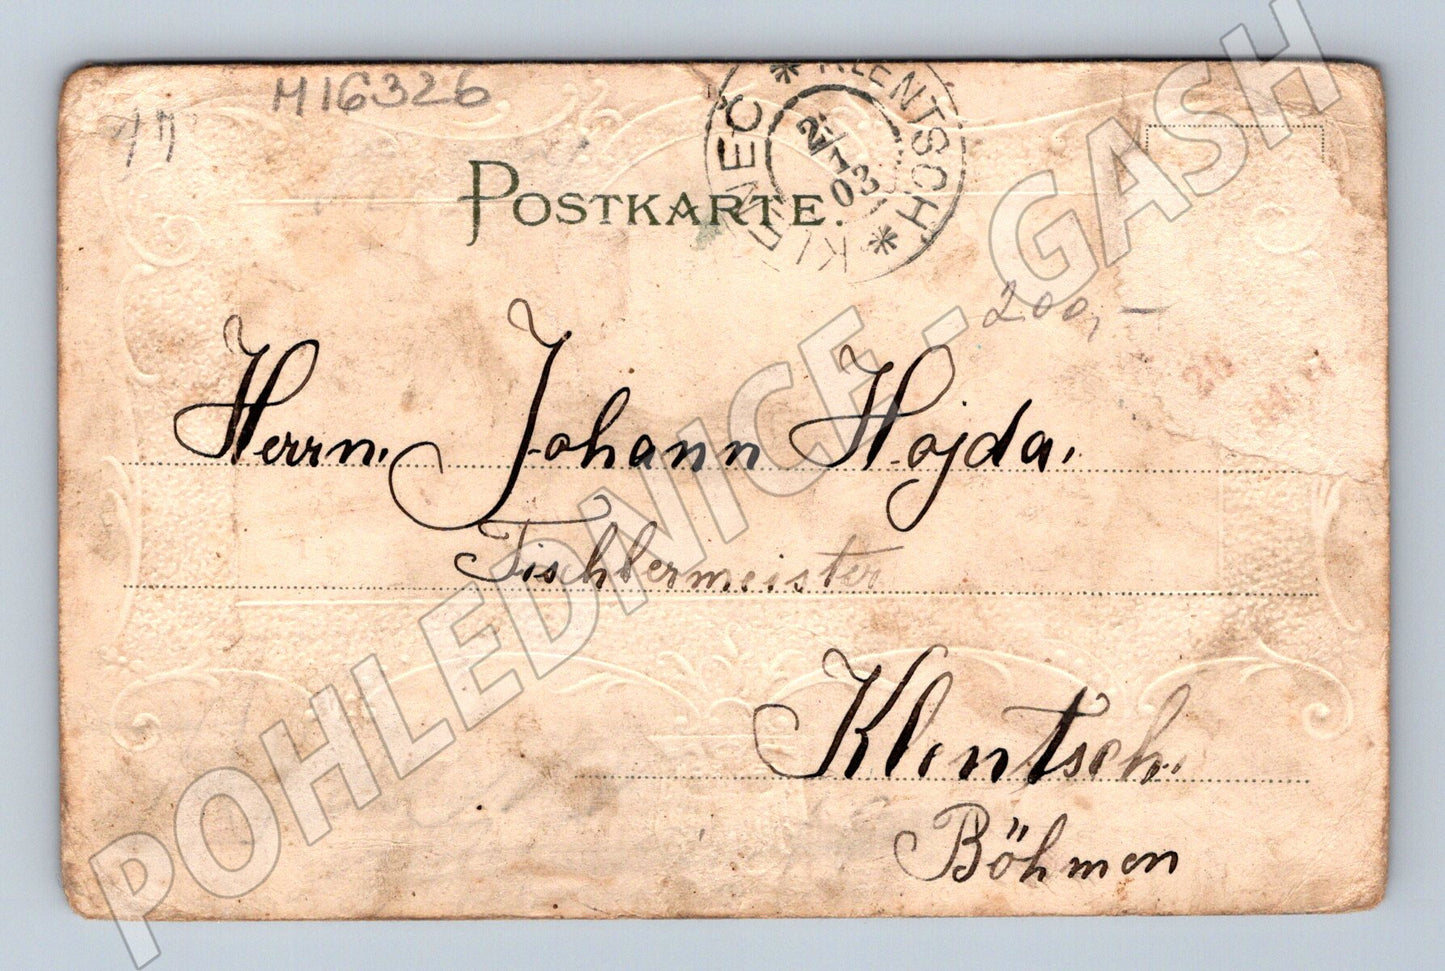 M16326
KLENEČ * KLENTSCH *
03
POSTKARTE.
200,-
Herrn. Johann Hojda.
Tischlermeister
Klentsch.
Böhmen
POHLEDNICE - GASH